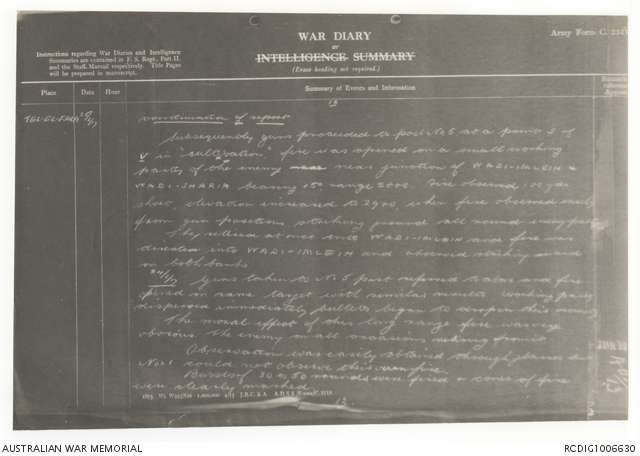 WAR DIARY
or
INTELLIGENCE SUMMARY
(Erase heading not required.)
Army Form C.
Instructions regarding War Diaries and Intelligence
Summaries are contained in F. S. Regs., Part II.
and the Staff Manual respectively. Title Pages
will be prepared in manuscript.
Place Date Hour Summary of Events and Information
TEL-EL-FARA
continuation of report
Subsequently guns proceeded to post No 5 at a point S of
V in "cultivation" fire was opened on a small working
party of the enemy near junction of WADI-IMLEIH &
WADI-SHARIA bearing 150 range 2000. Fire observed 100 yds
short, elevation increased to 2900, when fire observed easily
from gun position, striking ground all round enemy party
They retired at once into WADI-IMLEIH and fire was
directed into WADI-IMLEIH and observed striking sand
on both banks.
Guns taken to No 5 post referred to above and fire
opened on same target with similar results working party
dispersed immediately bullets began to drop in this vicinity
The moral effect of this long range fire was very
obvious the enemy in all instances retiring from it
Observation was easily obtained through glasses but
No 1 could not observe this fire
Bursts of 30 & 50 rounds were fired & cones of fire
were clearly marked
13
AUSTRALIAN WAR MEMORIAL
RCDIG1006630